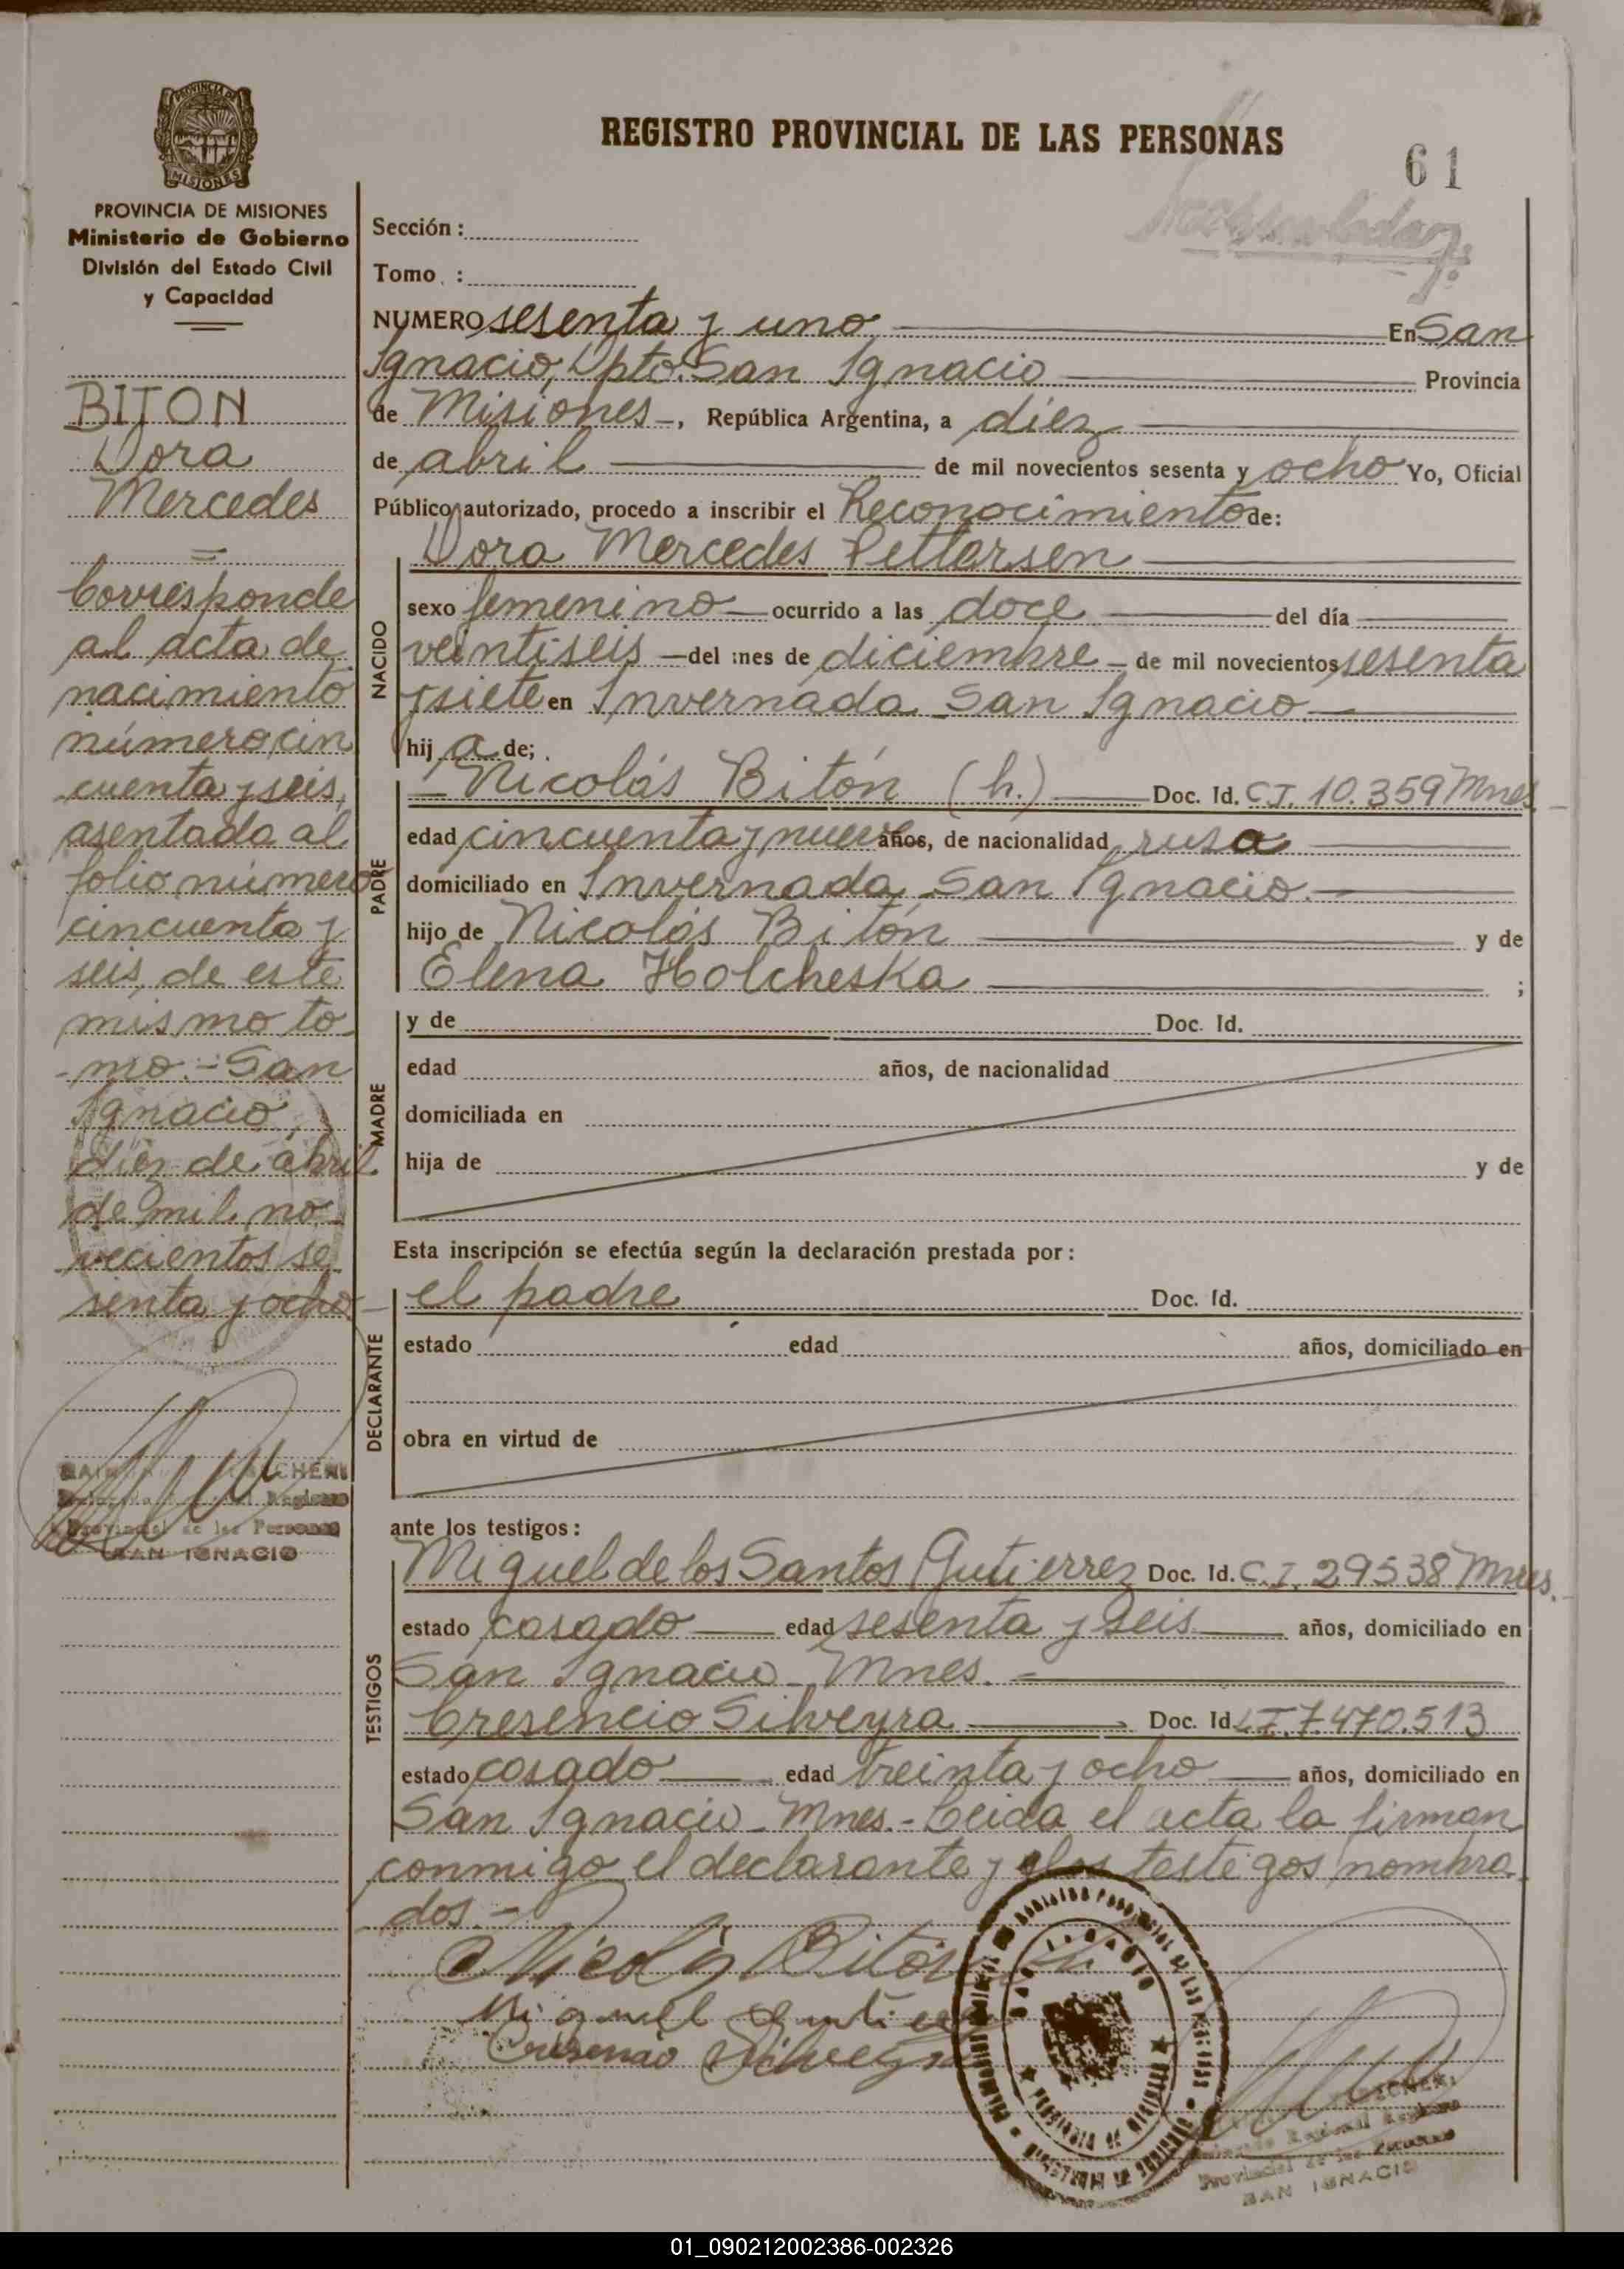 REGISTRO PROVINCIAL DE LAS PERSONAS
61
PROVINCIA DE MISIONES
Ministerio de Gobierno
División del Estado Civil
y Capacidad
BITON
Dora
Mercedes
Corresponde
al acta de
nacimiento
número cin
cuenta y seis,
asentada al
folio número
cincuenta y
seis, de este
mismo to-
mo.- San
Ignacio,
diez de abril
de mil no-
vecientos se
senta y ocho
Provincial de las Personas
SAN IGNACIO
Sección :
Tomo :
NUMERO sesenta y uno En San
Ignacio, Dpto. San Ignacio Provincia
de Misiones -, República Argentina, a diez
de abril de mil novecientos sesenta y ocho Yo, Oficial
Público autorizado, procedo a inscribir el Reconocimiento de:
Dora Mercedes Pettersen
NACIDO
sexo femenino ocurrido a las doce del día
veintiseis - del mes de diciembre - de mil novecientos sesenta
y siete en Invernada San Ignacio.-
hij a de;
PADRE
Nicolás Bitón (h.) Doc. Id. C.I. 10.359 Mnes
edad cincuenta y nueve años, de nacionalidad rusa
domiciliado en Invernada San Ignacio.-
hijo de Nicolás Bitón y de
Elena Holcheska ;
MADRE
y de Doc. Id.
edad años, de nacionalidad
domiciliada en
hija de y de
Esta inscripción se efectúa según la declaración prestada por :
DECLARANTE
el padre Doc. Id.
estado edad años, domiciliado en
obra en virtud de
ante los testigos :
TESTIGOS
Miguel de los Santos Gutierrez Doc. Id. C.I. 29538 Mnes.
estado casado edad sesenta y seis años, domiciliado en
San Ignacio - Mnes.
Cresencio Silveyra Doc. Id. 7.470.513
estado casado edad treinta y ocho años, domiciliado en
San Ignacio - Mnes.- Leida el acta la firman
conmigo el declarante y los testigos nombra-
dos.-
Nicolás Bitón
Miguel
Cresencio Silveyra
Provincial de las Personas
SAN IGNACIO
01_090212002386-002326